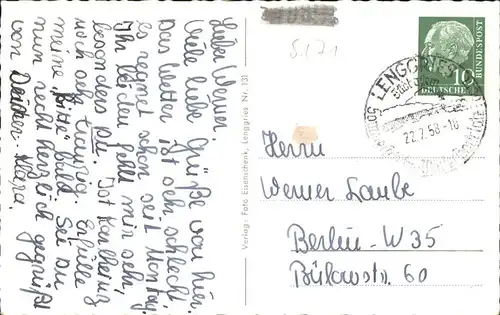 Lieber Werner,
Viele liebe Grüße von hier.
Das Wetter ist sehr schlecht
es regnet schon seit Montag.
Ihr beiden fehlt mir sehr,
besonders Du. Ist Karlheinz
noch sehr traurig. Erfülle
meine "Bitte" bald. Sei Du
nun recht herzlich gegrüßt
von Deiner Klara.
Verlag: Foto Eisenschenk, Lenggries Nr. 131
S 171
LENGGRIES
22.7.58-18
10
DEUTSCHE
BUNDESPOST
Herrn
Werner Laube
Berlin-W 35
Bülowstr. 60